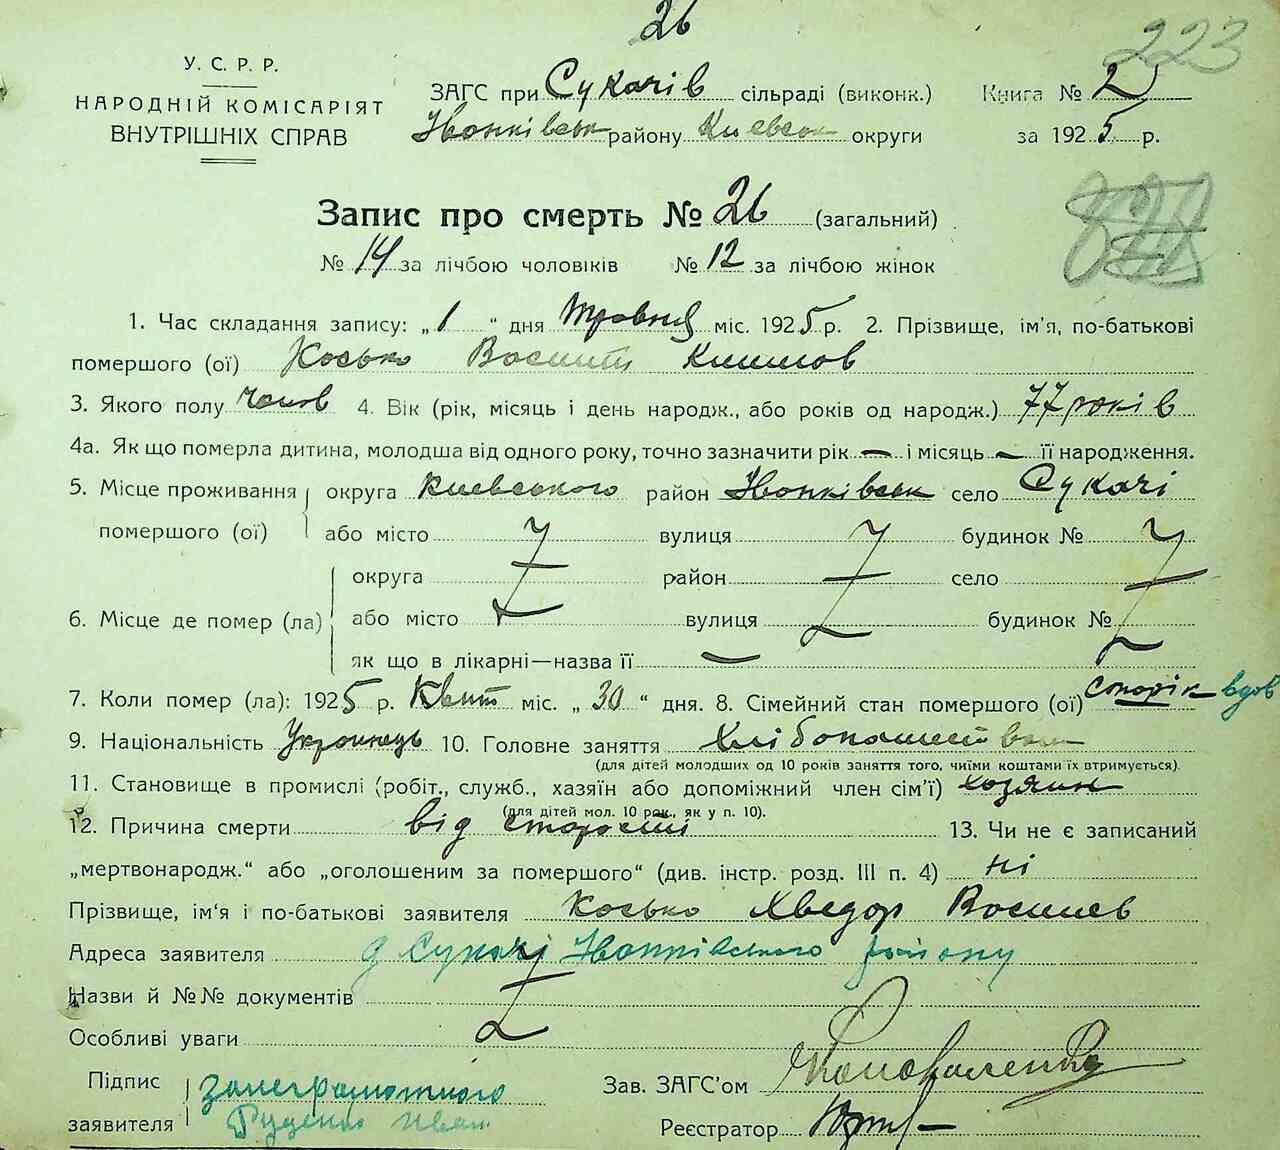 26
223
У. С. Р. Р.
НАРОДНІЙ КОМІСАРІЯТ
ВНУТРІШНІХ СПРАВ
ЗАГС при Сукачів сільраді (виконк.)
Іванківськ району Киевськ округи
Книга № 2
за 1925 р.
Запис про смерть № 26 (загальний)
№ 14 за лічбою чоловіків № 12 за лічбою жінок
1. Час складання запису: „1“ дня Травня міс. 1925 р. 2. Прізвище, ім’я, по-батькові
помершого (ої) Косько Василь Климов
3. Якого полу чолов 4. Вік (рік, місяць і день народж., або років од народж.) 77 років
4а. Як що померла дитина, молодша від одного року, точно зазначити рік — і місяць — її народження.
5. Місце проживання помершого (ої) округа Киевського район Іванківськ село Сукачі
або місто вулиця будинок №
6. Місце де помер (ла) округа район село
або місто вулиця будинок №
як що в лікарні—назва її —
7. Коли помер (ла): 1925 р. Квіт міс. „30“ дня. 8. Сімейний стан помершого (ої) вдов
9. Національність Українець 10. Головне заняття Хлібопашеством
(для дітей молодших од 10 років заняття того, чиїми коштами їх втримується).
11. Становище в промислі (робіт., служб., хазяїн або допоміжний член сім’ї) хозяин
(для дітей мол. 10 рок., як у п. 10).
12. Причина смерти від старості 13. Чи не є записаний
„мертвонародж.“ або „оголошеним за помершого“ (див. інстр. розд. III п. 4) ні
Прізвище, ім‘я і по-батькові заявителя Косько Хведор Васильев
Адреса заявителя с Сукачі Іванківського району
Назви й №№ документів
Особливі уваги
Підпис заявителя занеграмотного
Руденко Иван
Зав. ЗАГС’ом Коноваленко
Реєстратор